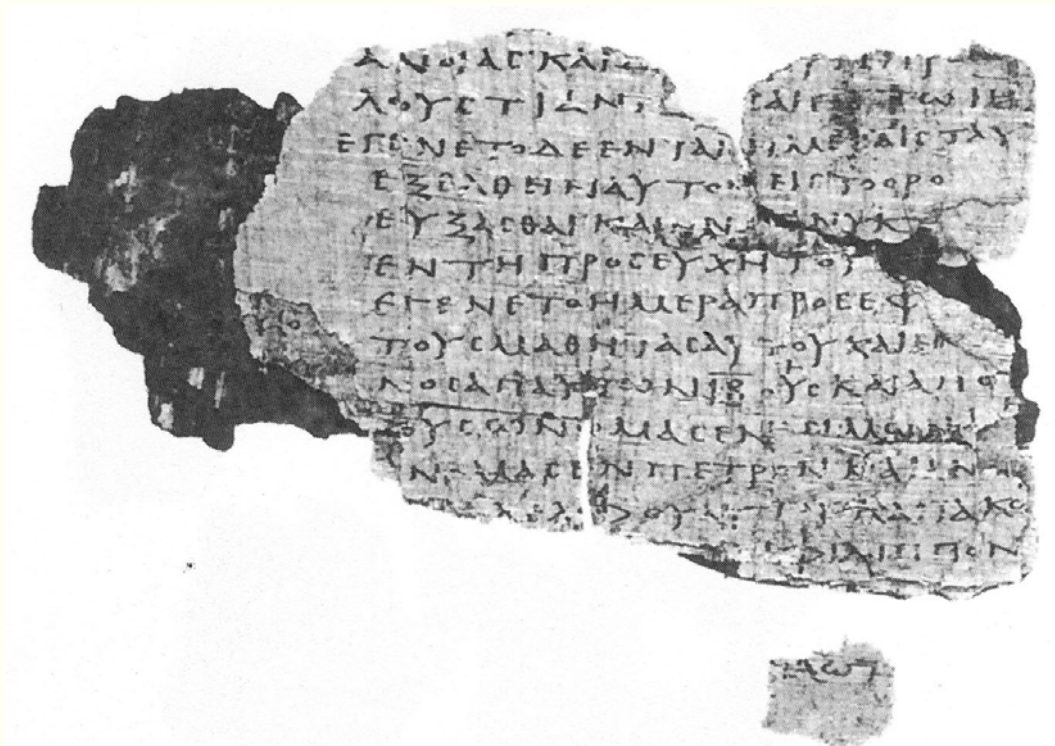 ΑΝΟΙΑϹ ΚΑΙ
ΛΟΥϹ ΤΙ ΑΝ ϹΑΙΕΝ ΤΩ ΙΗ
ΕΓΕΝΕΤΟ ΔΕ ΕΝ ΤΑΙϹ ΗΜΕΡΑΙϹ ΤΑΥ
ΕΞΕΛΘΕΙΝ ΑΥΤΟΝ ΕΙϹ ΤΟ ΟΡΟ
ΕΥΞΑϹΘΑΙ ΚΑΙ ΗΝ ΔΙΑΝΥΚ
ΕΝ ΤΗ ΠΡΟϹΕΥΧΗ ΤΟΥ
ΕΓΕΝΕΤΟ ΗΜΕΡΑ ΠΡΟϹΕΦ
ΤΟΥϹ ΜΑΘΗΤΑϹ ΑΥΤΟΥ ΚΑΙ ΕΚ
ΑΠ ΑΥΤΩΝ ΙΒ ΟΥϹ ΚΑΙ ΑΠΟ
ΛΟΥϹ ΩΝΟΜΑϹΕΝ ϹΙΜΩΝΑ
ΩΝΟΜΑϹΕΝ ΠΕΤΡΟΝ ΚΑΙ ΑΝ
ΙΑΚΟ
ΦΙΛΙΠΠΟΝ